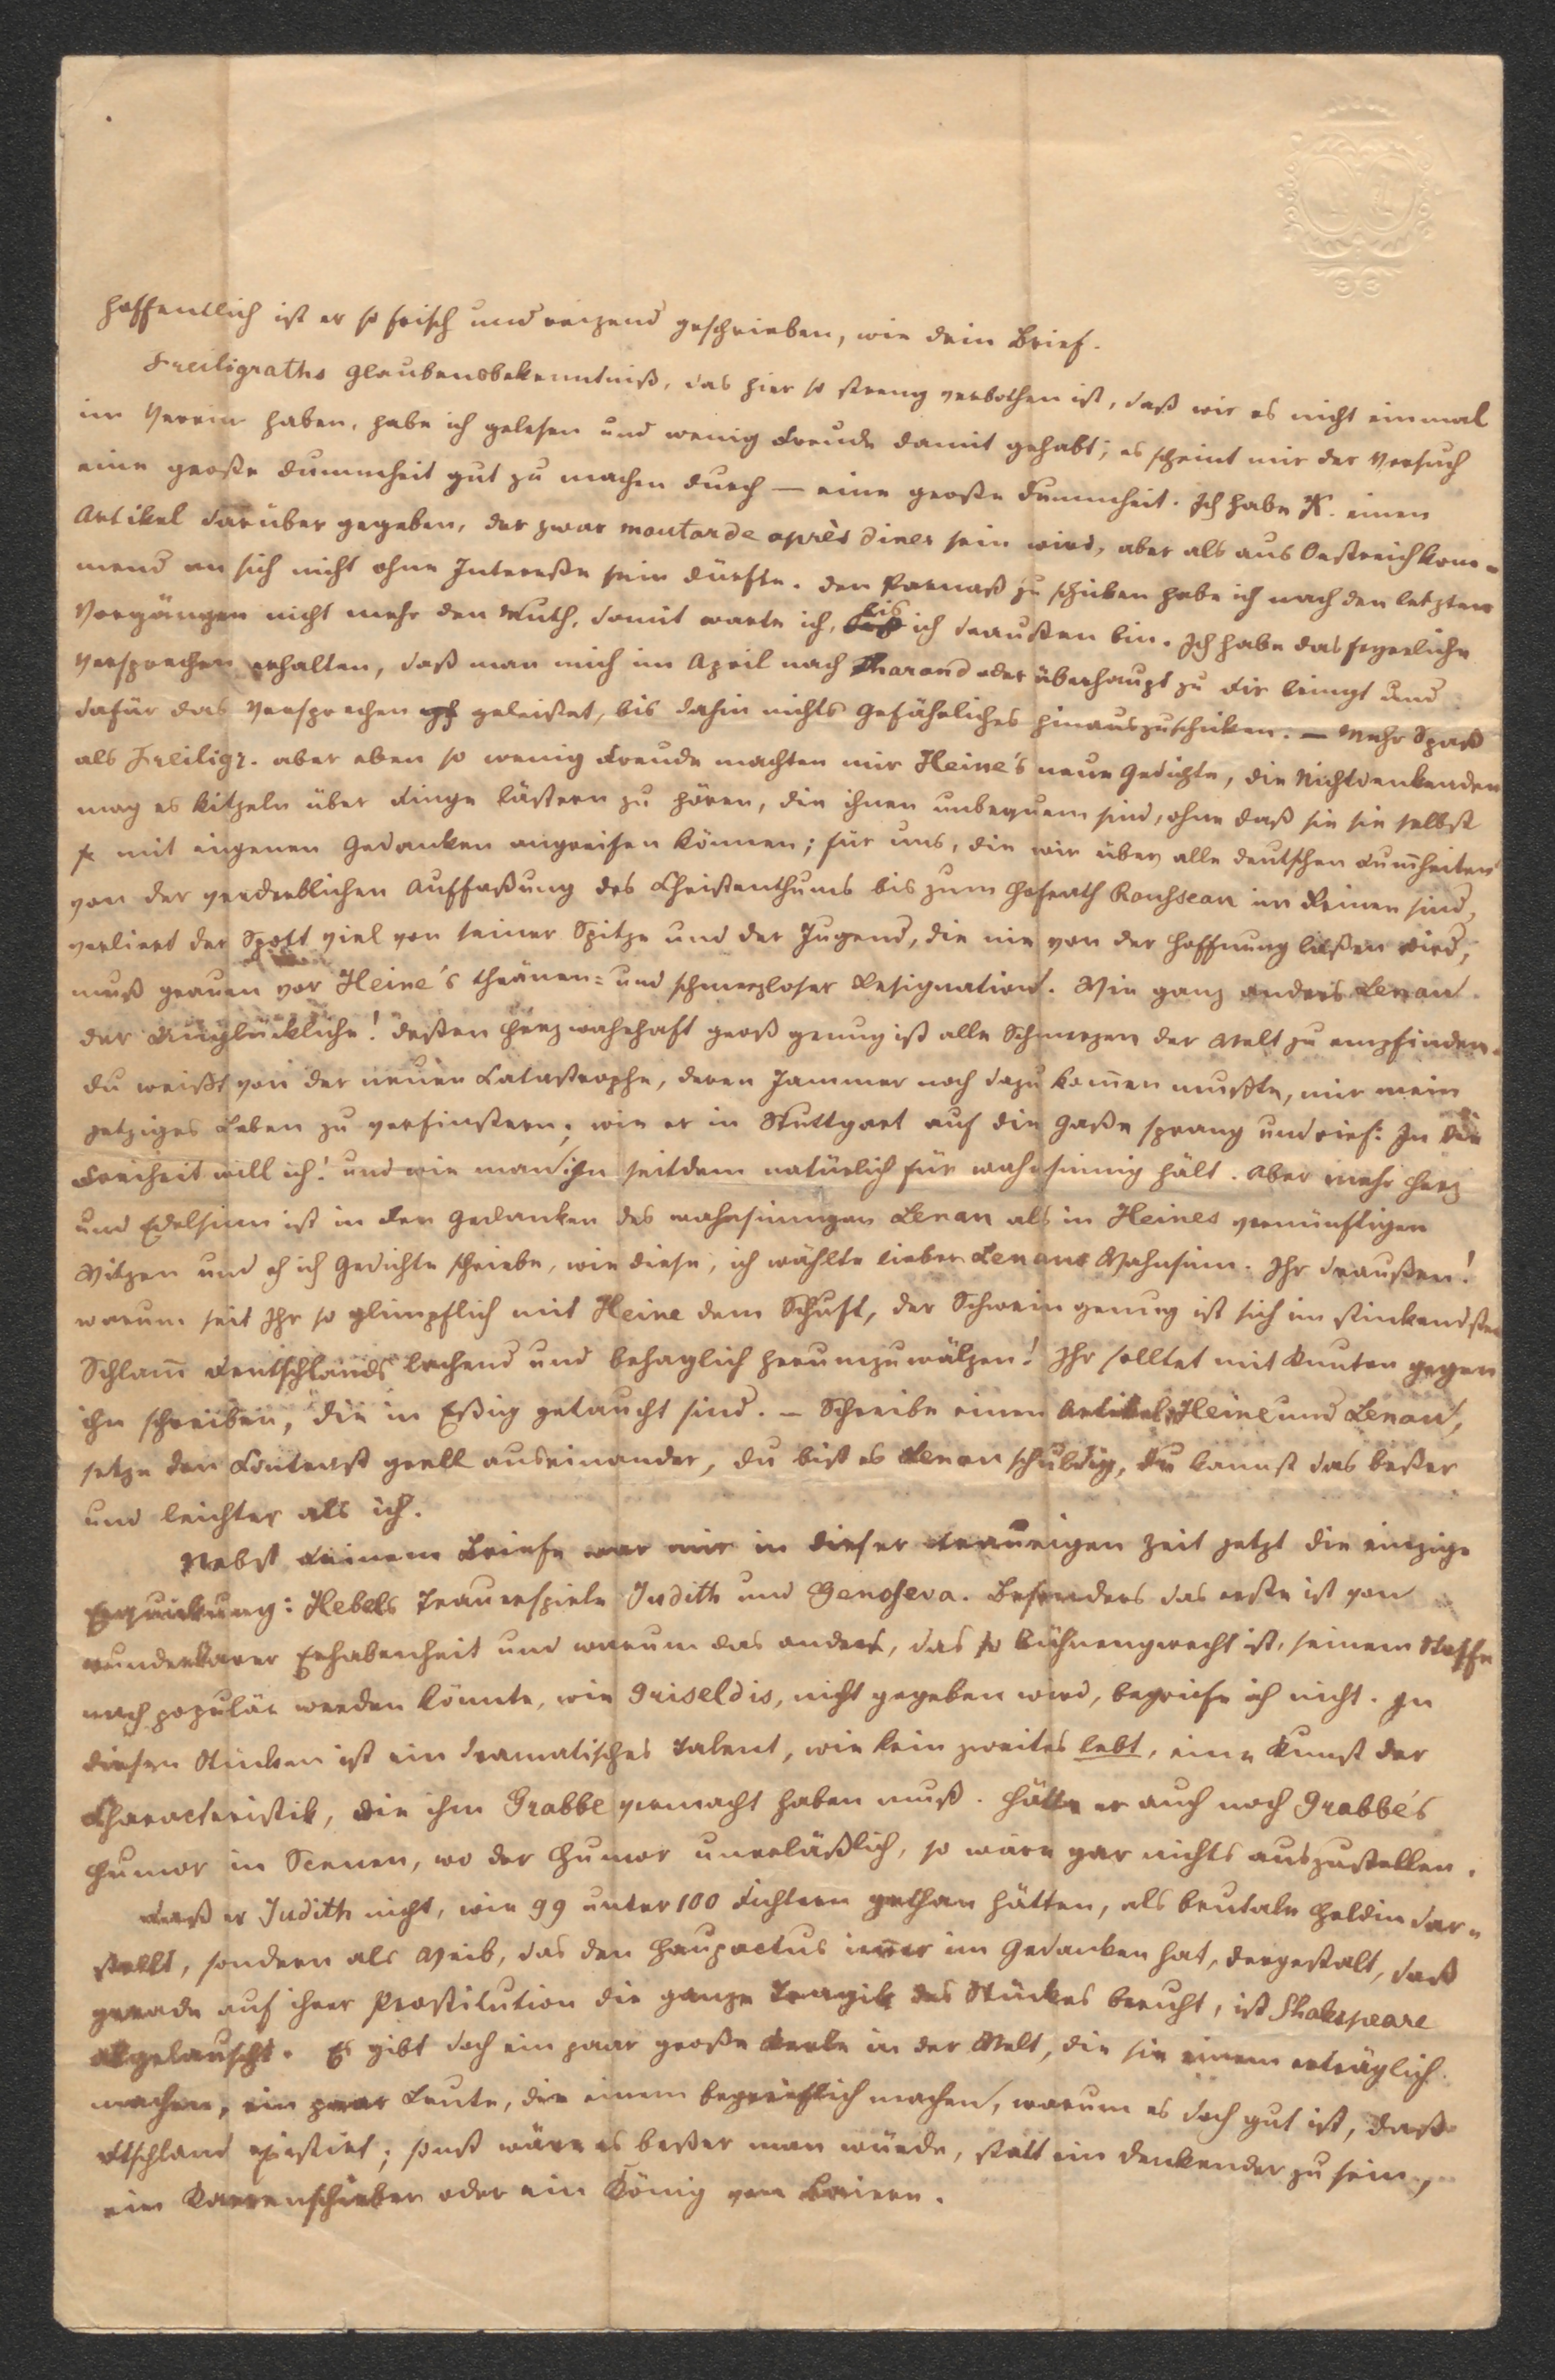 hoffentlich ist er so frisch und reizend geschrieben, wie dein Brief.
Freiligraths Glaubensbekenntniß, das hier so streng verbothen ist, daß wir es nicht einmal
im Verein haben, habe ich gelesen und wenig Freude damit gehabt; es scheint mir der Versuch
eine große Dummheit gut zu machen durch — eine große Dummheit. Ich habe K. einen
Artikel darüber gegeben, der zwar moutarde après diner sein wird, aber als aus Oestreich kom=
mend an sich nicht ohne Interesse sein dürfte. Den Parnaß zu schicken habe ich nach den letzten
Vorgängen nicht mehr den Muth, damit warte ich, bis ich draußen bin. Ich habe das feyerliche
Versprechen erhalten, daß man mich im April nach Tharand oder überhaupt zu dir bringt und
dafür das Versprechen geleistet, bis dahin nichts Gefährliches hinauszuschicken. — Mehr Spaß
als Freiligr. aber eben so wenig Freude machten mir Heine's neue Gedichte, die Nichtdenkenden
mag es kitzeln über Dinge lästern zu hören, die ihnen unbequem sind, ohne daß sie sie selbst
mit eigenen Gedanken angreifen können; für uns, die wir über alle deutschen Dumheiten
von der verderblichen Auffaßung des Christenthums bis zum Hofrath Rousseau im Reinen sind,
verliert der Spott viel von seiner Spitze und der Jugend, die nie von der Hoffnung laßen wird,
muß grauen vor Heine's thränen= und schmerzloser Resignation. Wie ganz anders Lenau
der Unglückliche! deßen Herz wahrhaft groß genug ist alle Schmerzen der Welt zu empfinden.
Du weißt von der neuen Catastrophe, deren Jammer noch dazu kommen mußte, mir mein
jetziges Leben zu verfinstern; wie er in Stuttgart auf die Gaße sprang und rief: In die
Freiheit will ich! und wie man ihn seitdem natürlich für wahnsinnig hält. Aber mehr Herz
und Edelsinn ist in den Gedanken des wahnsinnigen Lenau als in Heines vernünftigen
Witzen und eh ich Gedichte schriebe, wie diese, ich wählte lieber Lenaus Wahnsinn. Ihr draußen!
warum seit Ihr so glimpflich mit Heine dem Schuft, der Schwein genug ist sich im stinkendsten
Schlam Deutschlands lachend und behaglich herumzuwälzen! Ihr solltet mit Knuten gegen
ihn schreiben, die in Eßig getaucht sind. — Schreibe einen Artikel: Heine und Lenau,
setze den Contrast grell auseinander, du bist es Lenau schuldig, du kannst das beßer
und leichter als ich.
Nebst Deinem Briefe war mir in dieser traurigen Zeit jetzt die einzige
Erquickung: Hebels Trauerspiele Judith und Genofeva. Besonders das erste ist von
wunderbarer Erhabenheit und warum das andere, das so bühnengerecht ist, seinem Stoffe
nach populär werden könnte, wie Griseldis, nicht gegeben wird, begreife ich nicht. In
diesen Stücken ist ein dramatisches Talent, wie kein zweites lebt, eine Kunst der
Characteristik, die ihm Grabbe vermacht haben muß. Hätte er auch noch Grabbe's
Humor in Scenen, wo der Humor unerläßlich, so wäre gar nichts auszustellen.
Daß er Judith nicht, wie 99 unter 100 Dichtern gethan hätten, als brutale Heldin dar=
stellt, sondern als Weib, das den Haupactus immer im Gedanken hat, dergestalt, daß
gerade auf ihrer Prostitution die ganze Tragik des Stückes beruht, ist Shakspeare
abgelauscht. Es gibt doch ein paar große Kerle in der Welt, die sie einem erträglich
machen, ein paar Leute, die einem begreiflich machen, warum es doch gut ist, daß
Dtschland existirt; sonst wäre es beßer man würde, statt ein Denkender zu sein,
ein Karrenschieber oder ein König von Baiern.